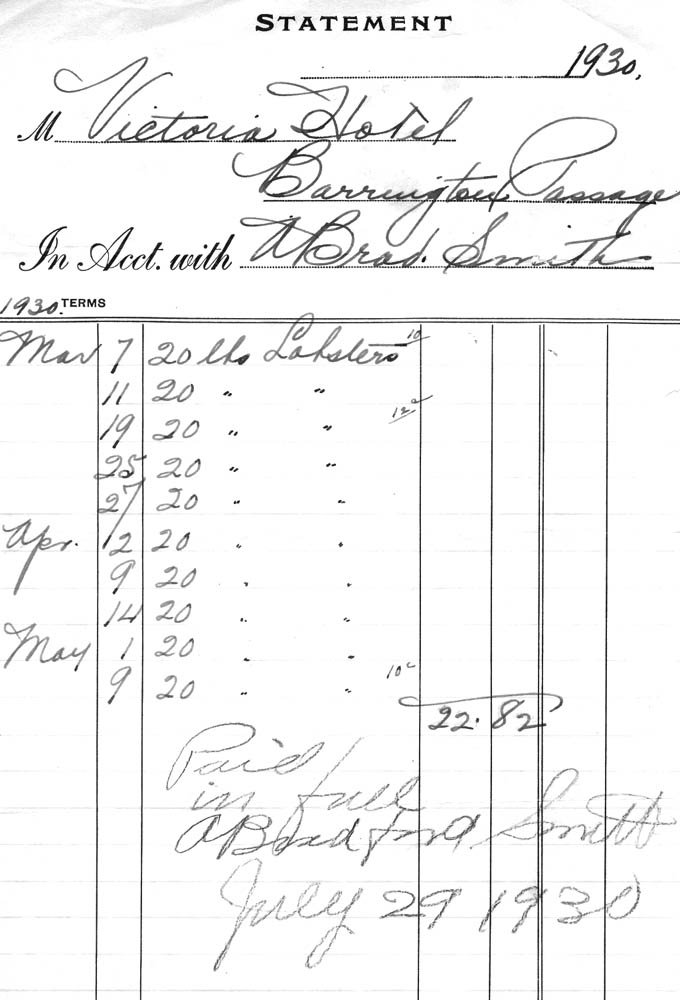 STATEMENT
1930.
M Victoria Hotel
Barrington Passage
In Acct. with A Brad. Smith
1930. TERMS
Mar 7 20 lbs Lobsters 10
11 20 " "
19 20 " " 12c
25 20 " "
27 20 " "
Apr. 2 20 " "
9 20 " "
14 20 " "
May 1 20 " "
9 20 " " 10c
22.82
Paid
in full
A Bradford Smith
July 29 1930